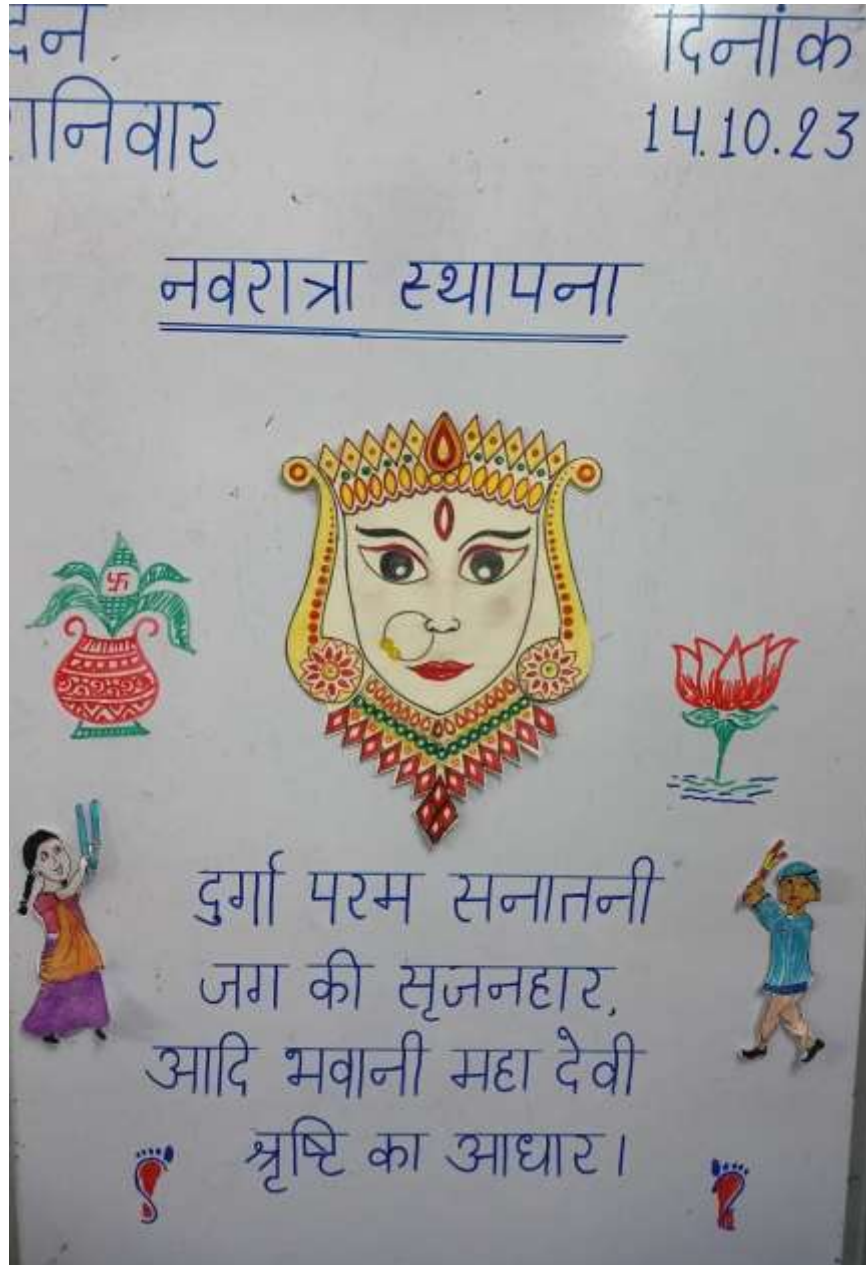 दिनांक
14.10.23
नवरात्रा स्थापना
दुर्गा परम सनातनी
जग की सृजनहार,
आदि भवानी महा देवी
श्रृष्टि का आधार।